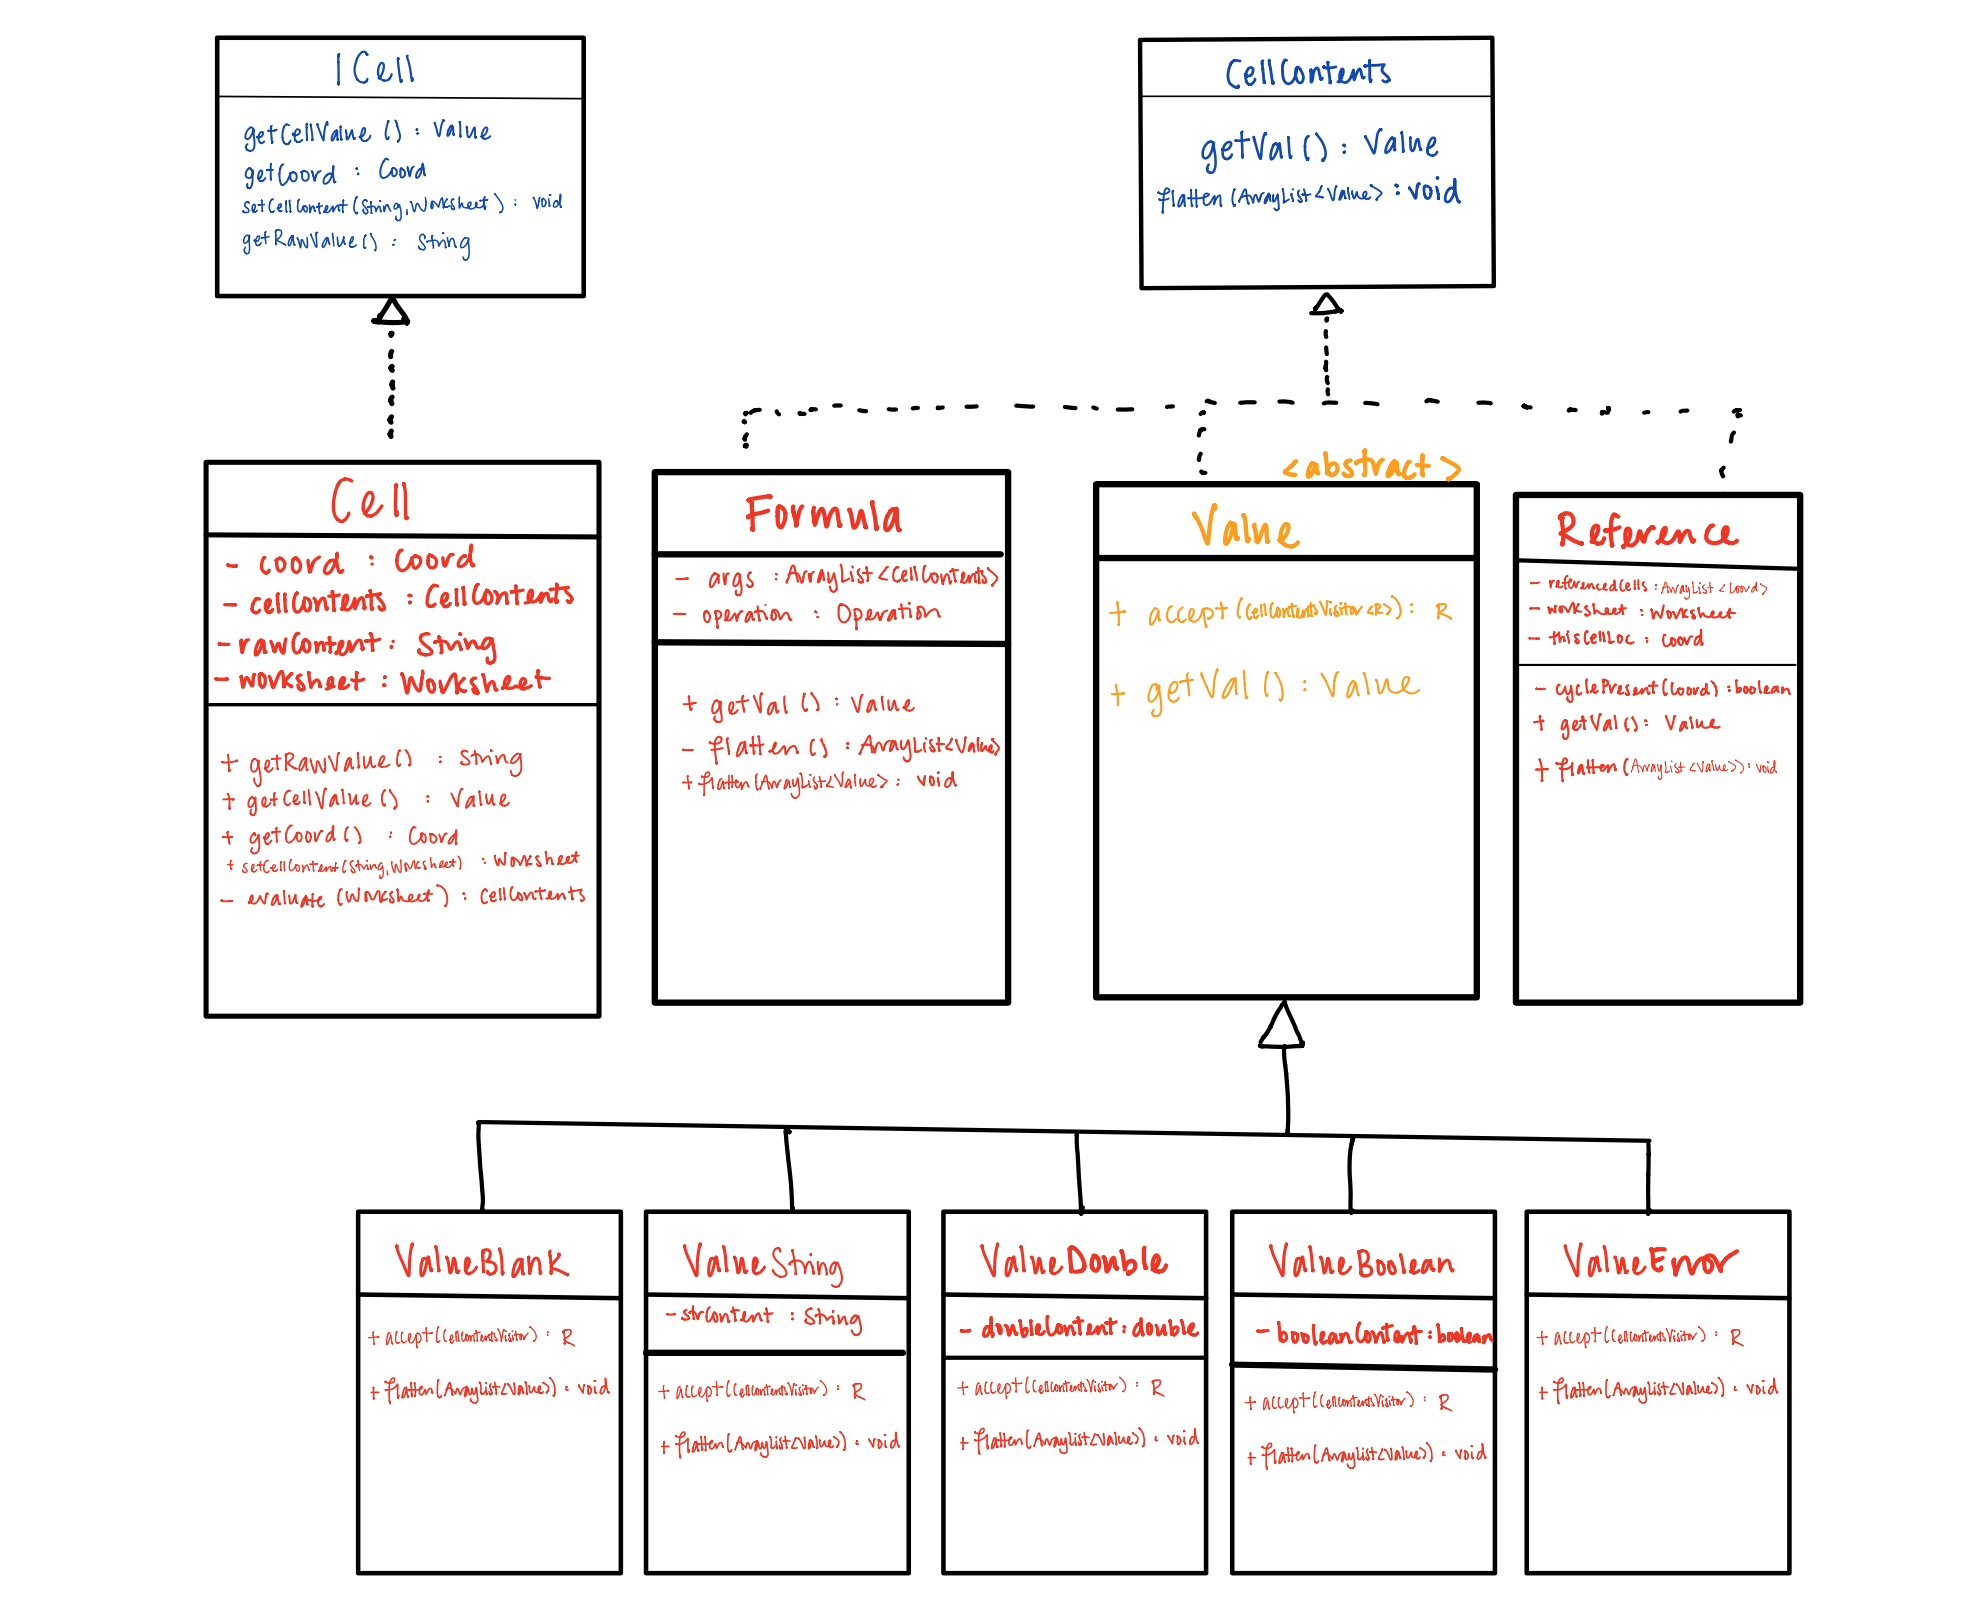 ICell
getCellValue () : Value
getCoord : Coord
setCellContent(String,Worksheet) : void
getRawValue() : String
CellContents
getVal() : Value
flatten (ArrayList<Value> : void
Cell
- coord : Coord
- cellContents : CellContents
- rawContent : String
- worksheet : Worksheet
+ getRawValue() : String
+ getCellValue() : Value
+ getCoord() : Coord
+ setCellContent(String,Worksheet) : Worksheet
- evaluate (Worksheet) : CellContents
Formula
- args : ArrayList<CellContents>
- operation : Operation
+ getVal () : Value
- flatten () : ArrayList<Value>
+ flatten (ArrayList<Value> : void
<abstract>
Value
+ accept (CellContentsVisitor <R>) : R
+ getVal () : Value
Reference
- referencedCells : ArrayList <Coord>
- worksheet : Worksheet
- thisCellLoc : Coord
- cyclePresent(Coord) : boolean
+ getVal() : Value
+ flatten (ArrayList <Value>) : void
ValueBlank
+ accept(CellContentsVisitor) : R
+ flatten(ArrayList<Value>) : void
ValueString
- strContent : String
+ accept(CellContentsVisitor) : R
+ flatten(ArrayList<Value>) : void
ValueDouble
- doubleContent : double
+ accept(CellContentsVisitor) : R
+ flatten(ArrayList<Value>) : void
ValueBoolean
- booleanContent : boolean
+ accept(CellContentsVisitor) : R
+ flatten(ArrayList<Value>) : void
ValueError
+ accept(CellContentsVisitor) : R
+ flatten(ArrayList<Value>) : void